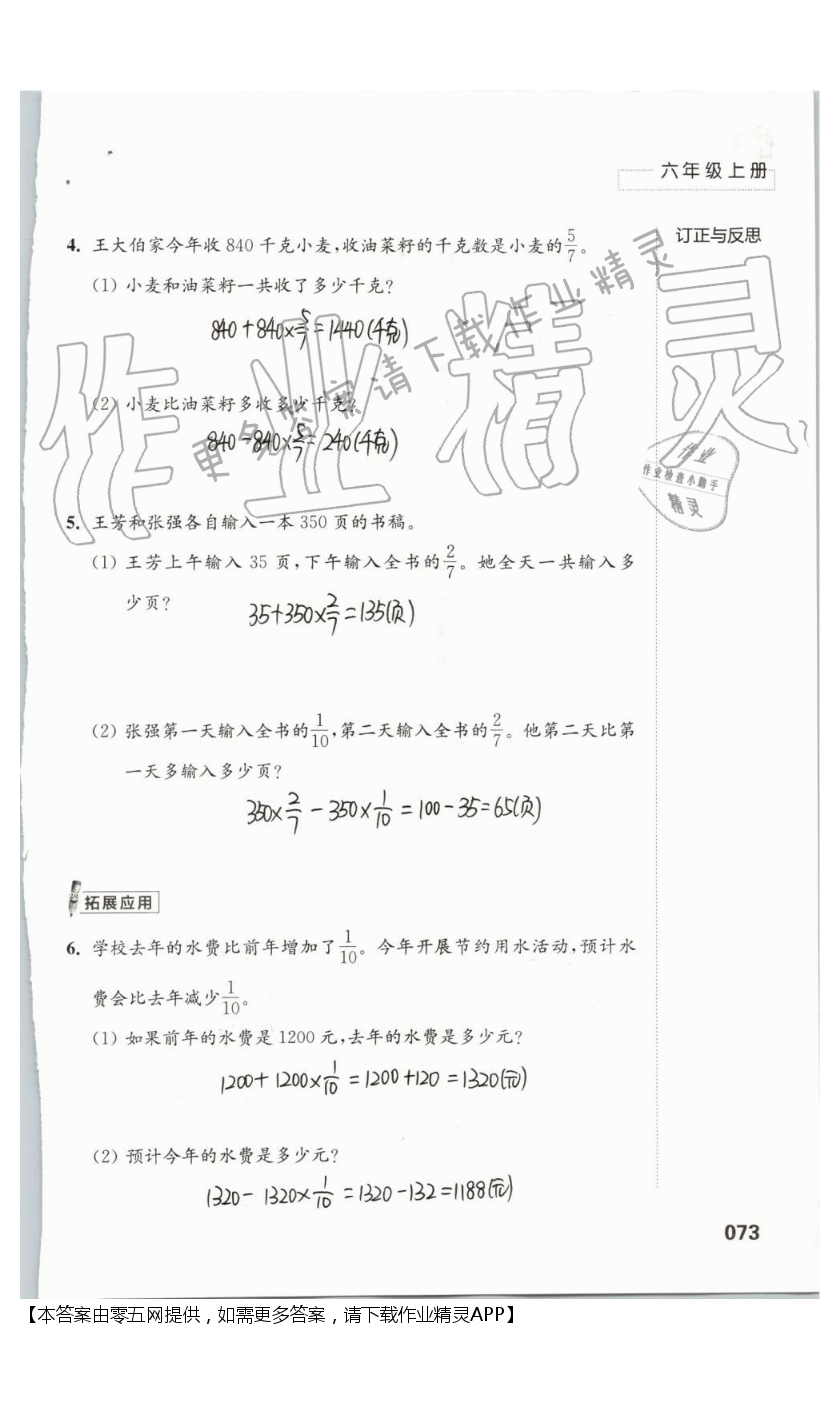 六年级上册
订正与反思
4. 王大伯家今年收 840 千克小麦,收油菜籽的千克数是小麦的5/7。
(1) 小麦和油菜籽一共收了多少千克?
840+840×5/7=1440(千克)
(2) 小麦比油菜籽多收多少千克?
840-840×5/7=240(千克)
5. 王芳和张强各自输入一本 350 页的书稿。
(1) 王芳上午输入 35 页,下午输入全书的2/7。她全天一共输入多
少页?
35+350×2/7=135(页)
(2) 张强第一天输入全书的1/10,第二天输入全书的2/7。他第二天比第
一天多输入多少页?
350×2/7-350×1/10=100-35=65(页)
拓展应用
6. 学校去年的水费比前年增加了1/10。今年开展节约用水活动,预计水
费会比去年减少1/10。
(1) 如果前年的水费是 1200 元,去年的水费是多少元?
1200+1200×1/10=1200+120=1320(元)
(2) 预计今年的水费是多少元?
1320-1320×1/10=1320-132=1188(元)
073
作业精灵
更多答案请下载作业精灵
作业
作业检查小助手
精灵
【本答案由零五网提供，如需更多答案，请下载作业精灵APP】